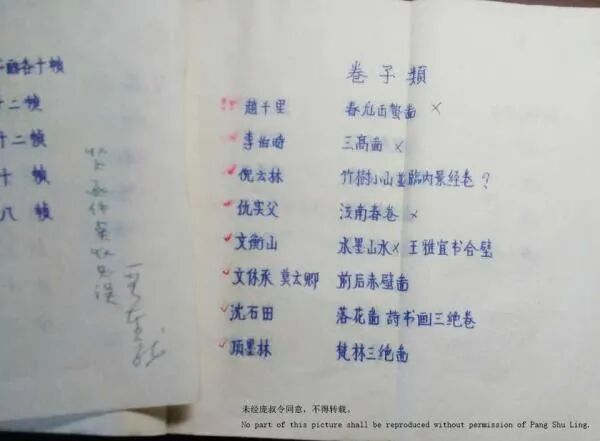 各十幀
十二幀
十二幀
十 幀
八 幀
卷子類
趙千里 春龙出蛰啚 ×
李伯時 三高啚 ×
倪云林 竹樹小山並臨内景经卷 ?
仇实父 江南春卷 ×
文衡山 水墨山水× 王雅宜书合壁
文休承 莫云卿 前后赤壁啚
沈石田 落花啚 詩书画三绝卷
项墨林 梵林三绝啚
未经庞叔令同意，不得转载。
No part of this picture shall be reproduced without permission of Pang Shu Ling.